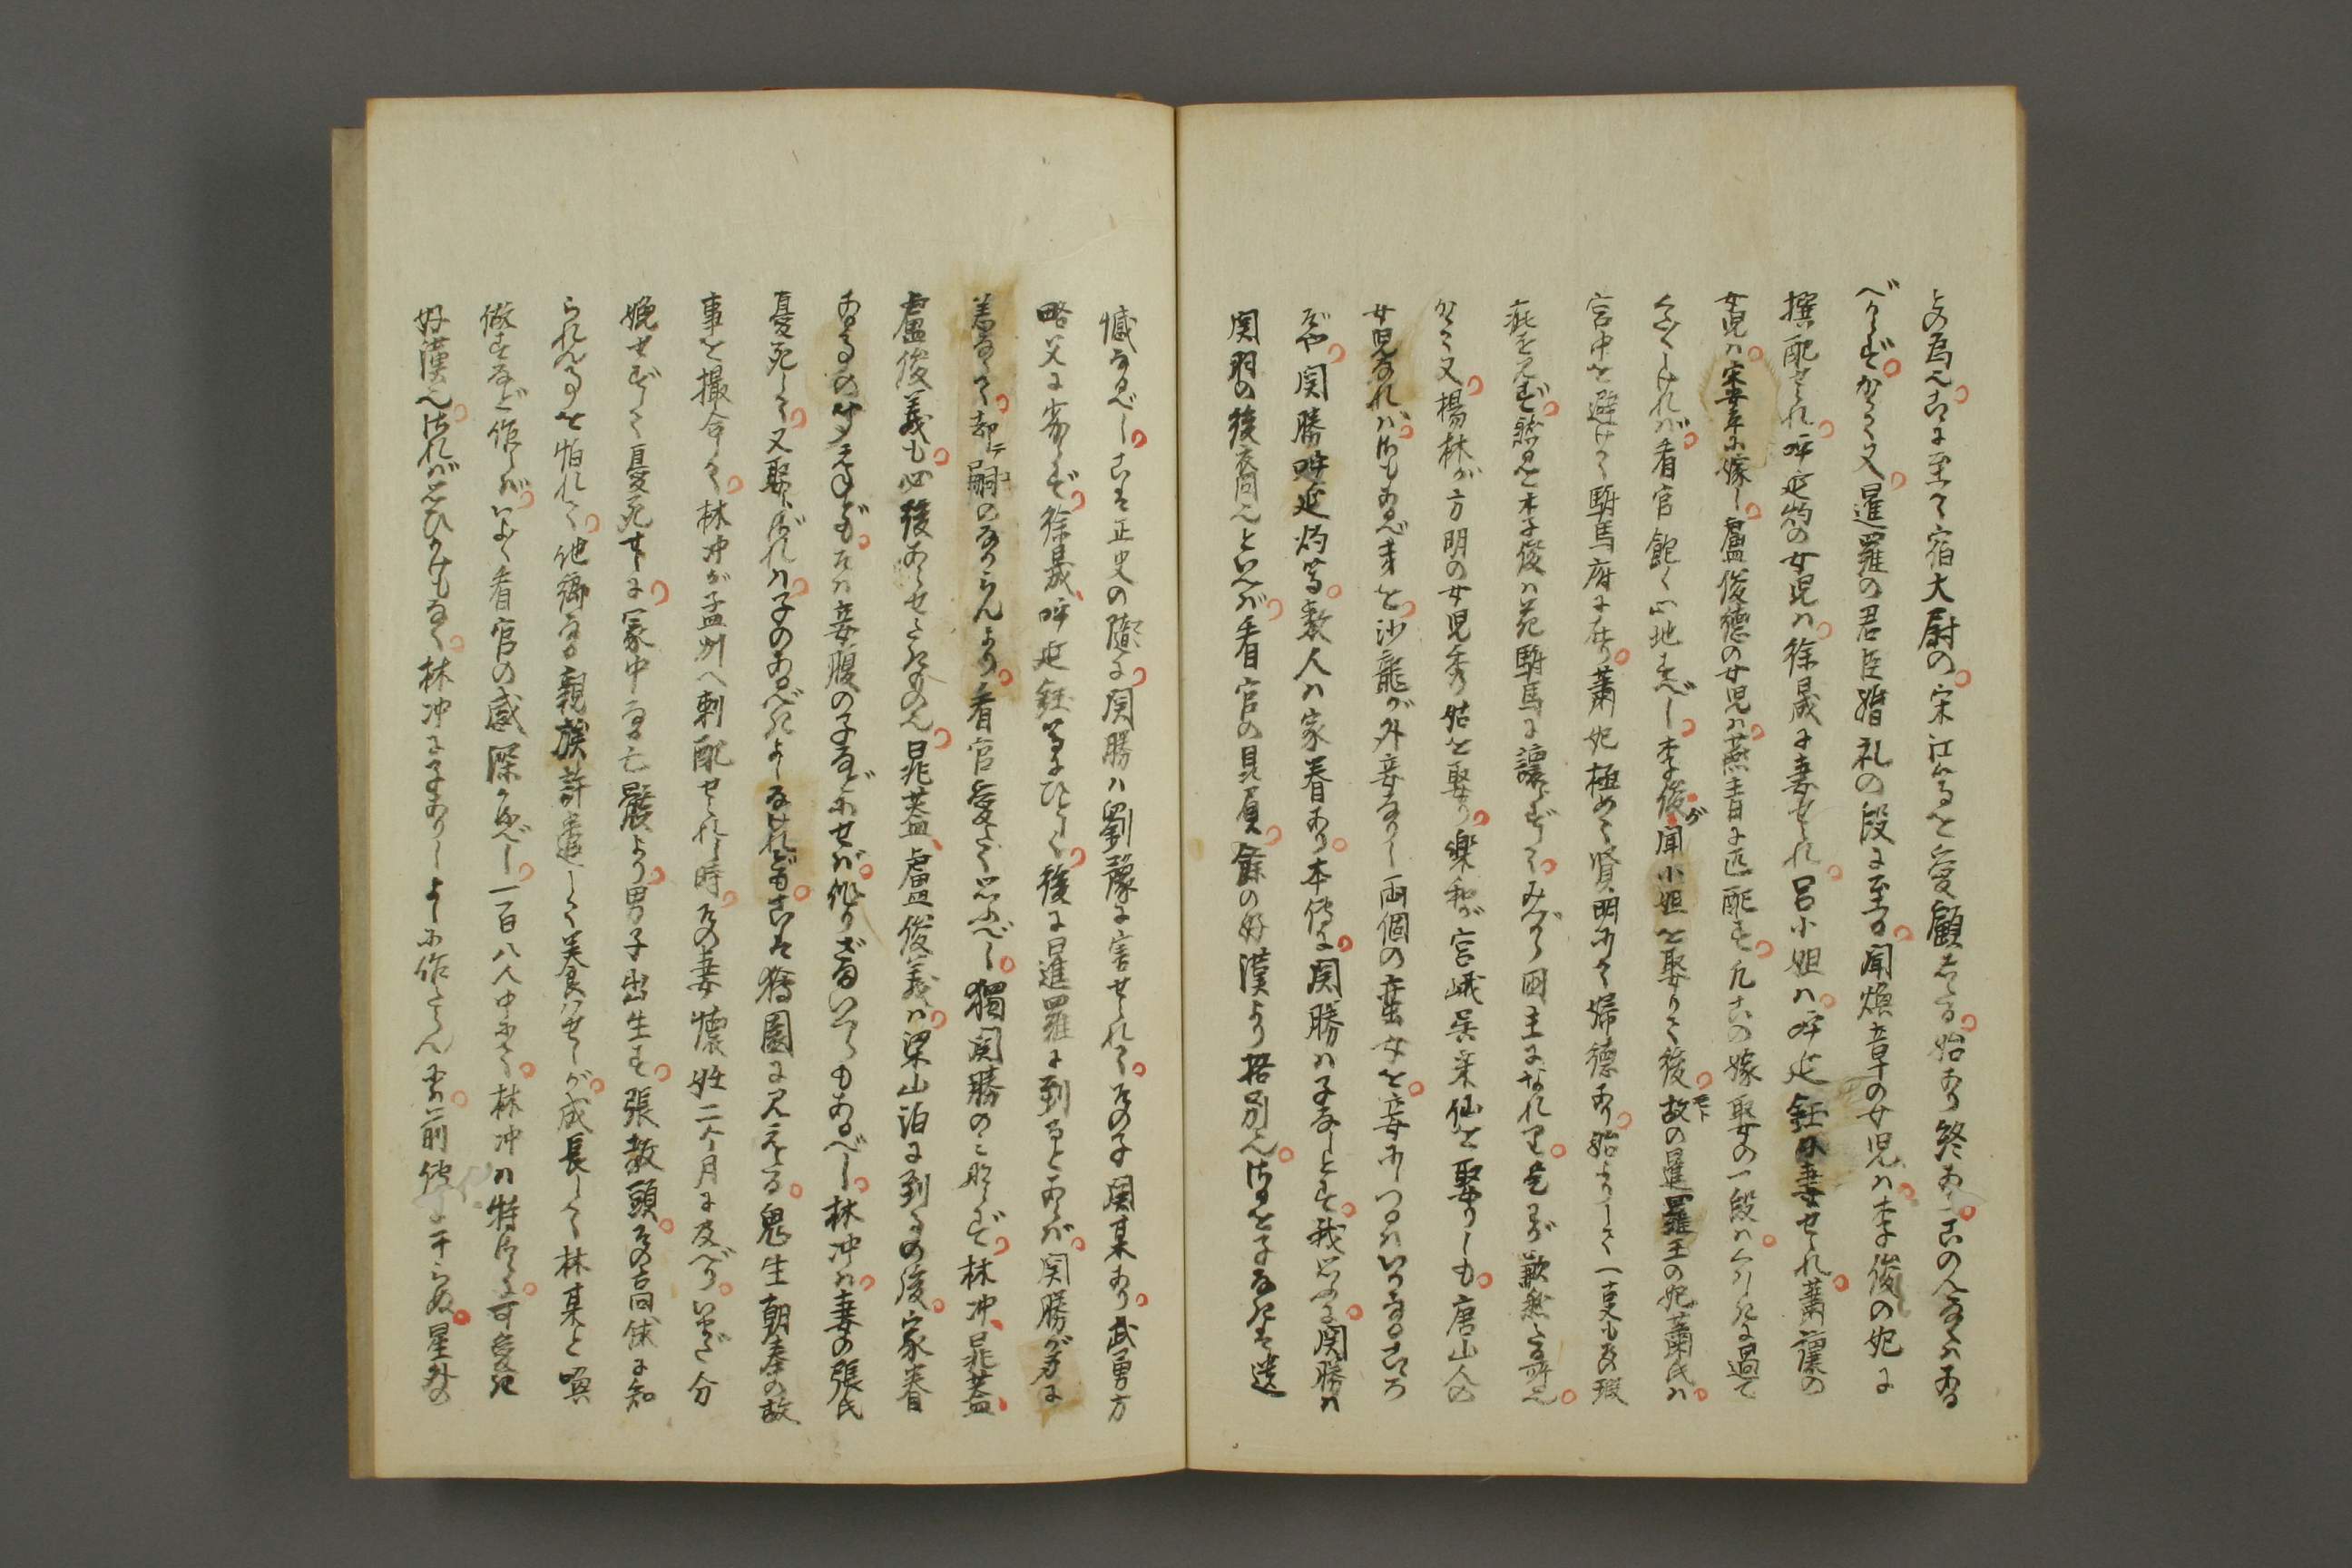 との為也こゝに至て宿大尉の宋江等を愛顧したる始あり終ありこの人なくはある
べからずかくて又暹羅の君臣婚礼の段に至る聞煥章の女児ハ李俊の妃に
撰配せられ呼延灼の女児ハ徐晟に妻せられ呂小姐ハ呼延鈺に妻せられ蕭讓の
女児ハ宋安平に嫁し盧俊徳の女児ハ燕青に匹配す凡この嫁娶の一段ハくだ〳〵しきに過て
くだ〳〵しけれバ看官飽く心地すべし李俊が聞小姐を娶りて後故の暹羅王の妃蕭氏ハ
宮中を避けて駙馬府に在り蕭妃極めて賢明にて婦徳あり始よりして一点もその瑕
疵を見ず然るを李俊ハ花駙馬に讓らずしてみづから国主になれり是わが歎息する所也
かくて又楊林が方明の女児秀姑を娶り楽和が宮娥呉采仙を娶りしも唐山人の
女児なれバさもあるべき事を沙龍が外妾なりし両個の蛮女を妾にしつるハいかなるこゝろ
ぞや関勝呼延灼等数人ハ家眷あり本傳に関勝ハ子なしとす我思ふに関勝ハ
関羽の後裔也といへバ看官の見る所餘の好漢より格別也さるを子なきは遺
憾なるべしこは正史の隨に関勝ハ劉豫に害せられてその子関某あり武勇方
略父に劣らず徐晟呼延鈺等とひとしく後に暹羅に到るとあらバ関勝が身に
恙なくて却テ嗣のなからんより看官愛たく思ふべし獨関勝のミならず林冲晁蓋
盧俊義も必後あらせたきもの也晁蓋盧俊義ハ梁山泊に到るの後家眷
あるよの聞えねどもそハ妾腹の子などにせバ作りざまいくらもあるべし林冲ハ妻の張氏
憂死して又娶らざれハ子のあるべきよしなけれどもこは獪園に見えたる鬼生朝奉の故
事を撮合して林冲が孟州へ刺配せられし時その妻懐妊二个月に及べりいまだ分
娩せずして憂死せしに冢中なる亡骸より男子出生す張教頭その高俅に知
られん事を怕れて他郷なる親族許遣して美食させしが成長して林某と喚
做すなど作らバいよ〳〵看官の感深かるべし一百八人中にて林冲ハ特さらに可愛
好漢也されバ思ひかけもなく林冲に子ありしよしに作らん事ハ前傳に干らぬ星外の